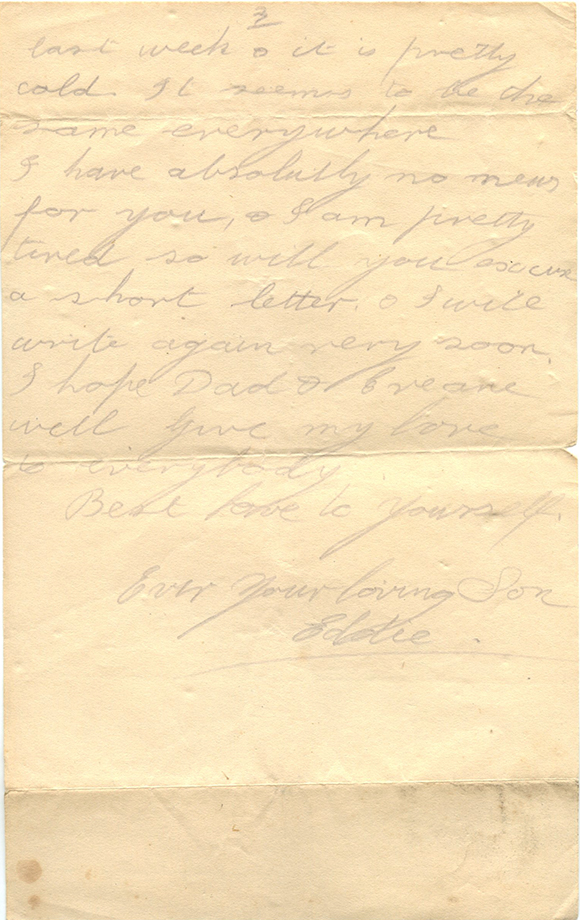 2
last week & it is pretty
cold. It seems to be the
same everywhere
I have absolutly no news
for you, & I am pretty
tired so will you excuse
a short letter. & I will
write again very soon.
I hope Dad & are
well Give my love
to everybody
Best love to yourself.
Ever Your loving Son
Eddie.